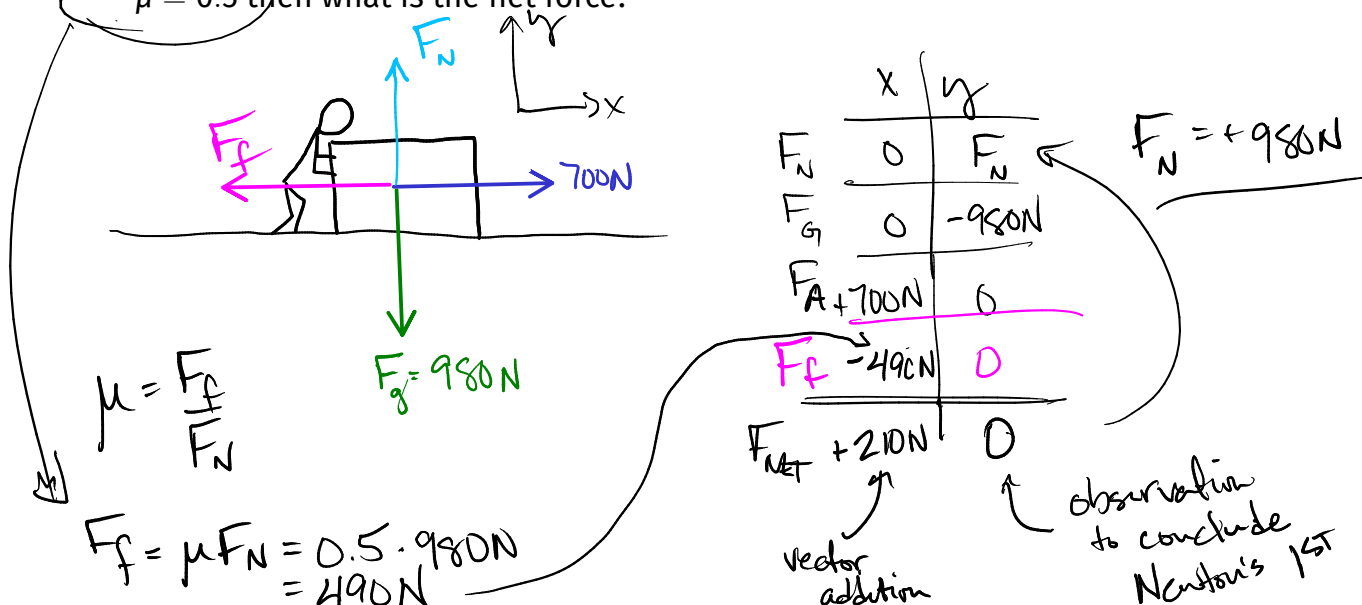 μ = 0.5 then what is the net force?
y
x
F_N
F_f
700N
F_g = 980N
μ = F_f / F_N
F_f = μF_N = 0.5 · 980N
= 490N
x y
F_N 0 F_N
F_G 0 -980N
F_A +700N 0
F_f -490N 0
F_NET +210N 0
F_N = +980N
vector
addition
observation
to conclude
Newton's 1ST